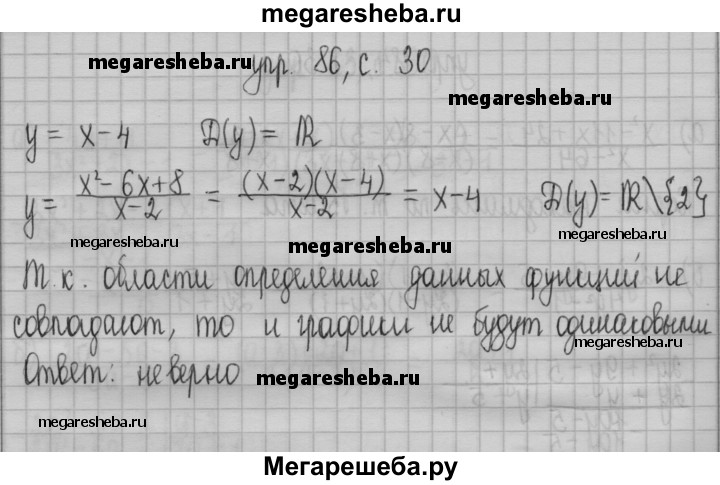 megaresheba.ru
megaresheba.ru упр. 86, с. 30
megaresheba.ru
y = x-4 D(y) = ℝ
y = (x²-6x+8)/(x-2) = ((x-2)(x-4))/(x-2) = x-4 D(y) = ℝ\{2}
megaresheba.ru megaresheba.ru megaresheba.ru
Т.к. области определения данных функций не
совпадают, то и графики не будут одинаковыми
megaresheba.ru
Ответ: неверно megaresheba.ru megaresheba.ru
megaresheba.ru
Мегарешеба.ру